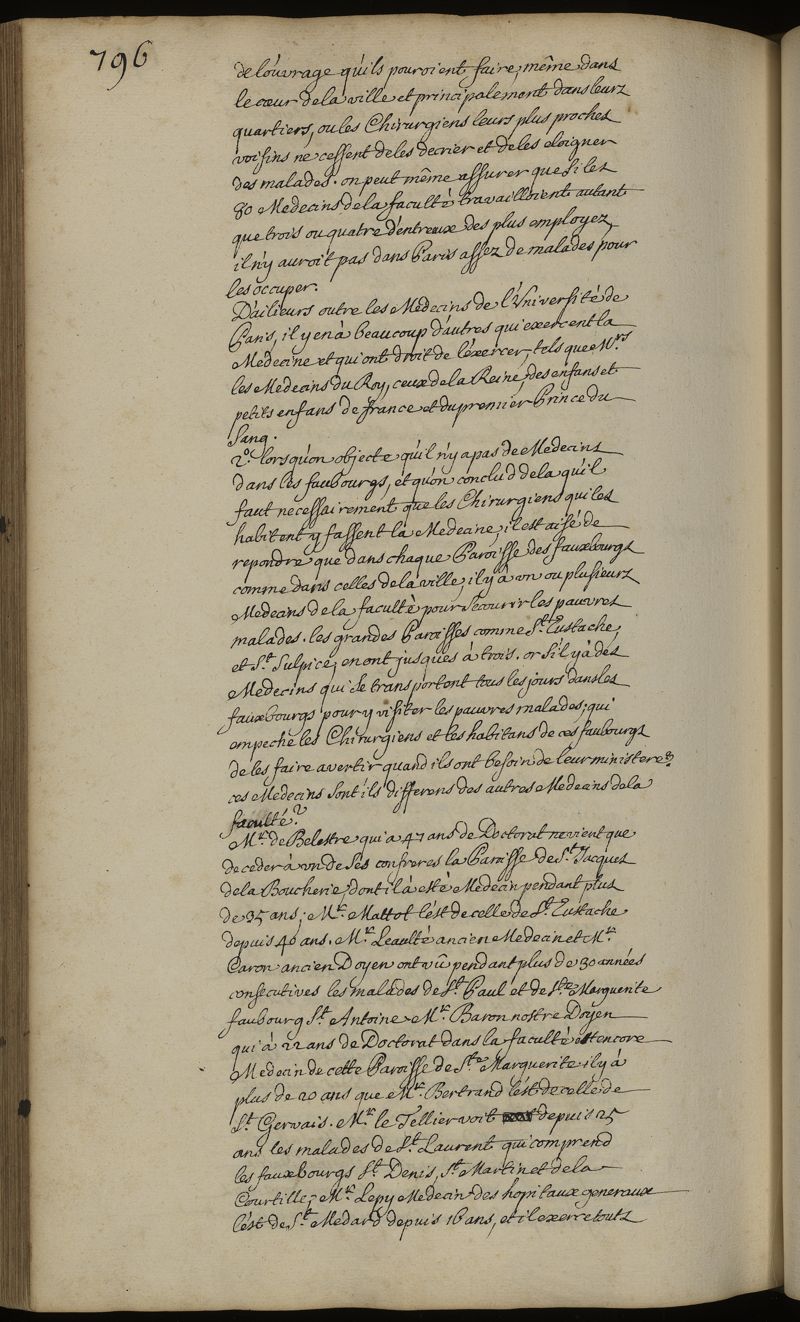 796
de l'ouvrage qu'ils pouroient faire, même dans
le cœur de la ville et principalement dans leurs
quartiers, ou les Chirurgiens leurs plus proches
voisins ne cessent de les decrier et de les eloigner
des malades. on peut même assurer que si les
80 Medecins de la faculté travailloient autant
que trois ou quatre d'entreux des plus employez,
il n'y auroit pas dans Paris assez de malades pour
les occuper.
D'ailieurs outre les Medecins de l'Université de
Paris, il y en à beaucoup d'autres qui exercent la
Medecine et qui ont droit de l'exercer, tels que Mrs
les Medecins du Roy, ceux de la Reine, des enfans et
petits enfans de france et du premier Prince du
Sang.
2o. lorsqu'on objecte qu'il n'y a pas de Medecins
dans les faubourgs, et qu'on conclud de la qu'il
faut necessairement que les Chirurgiens qui les
habitent y fassent la Medecine, il est aisé de
repondre que dans chaque Paroisse des fauxbourgs
comme dans celles de la ville, il y à un ou plusieurs
Medecins de la faculté pour secourir les pauvres
malades. les grandes Paroisses comme St. Eustache,
et St. Sulpice, en ont jusques à trois. or s'il y à des
Medecins qui se transportent tous les jours dans les
fauxbourgs pour y visiter les pauvres malades; qui
empeche les Chirurgiens et les habitans de ces faubourgs
de les faire avertir quand ils ont besoin de leur ministere?
ces Medecins sont ils differens des autres Medecins de la
faculté?
Mr. de Belestre qui a 47 ans de Doctorat ne vient que
de ceder à un de ses confreres la Paroisse de St. Jacques
de la Boucherie, dont il à esté Medecin pendant plus
de 35 ans; Mr. Mattot l'est de celle de St. Eustache
depuis 40 ans. Mr. Leaulté ancien Medecin et Mr.
Caron ancien Doyen ont vû pendant plus de 30 années
consecutives les malades de St. Paul et de Ste. Marguerite
faubourg St. Antoine. Mr. Baron nostre Doyen
qui à 22 ans de Doctorat dans la faculté est encore
Medecin de cette Paroisse de Ste. Marguerite il y à
plus de 20 ans que Mr. Bertrand l'est de celle de
St. Gervais. Mr. le Tellier voit depuis 25
ans les malades de St. Laurent qui comprend
les fauxbourgs St. Denis, St. Martin et de la
Courtille; Mr. Lepy Medecin des hopitaux generaux
l'est de St. Medard depuis 16 ans, et il exerce touts